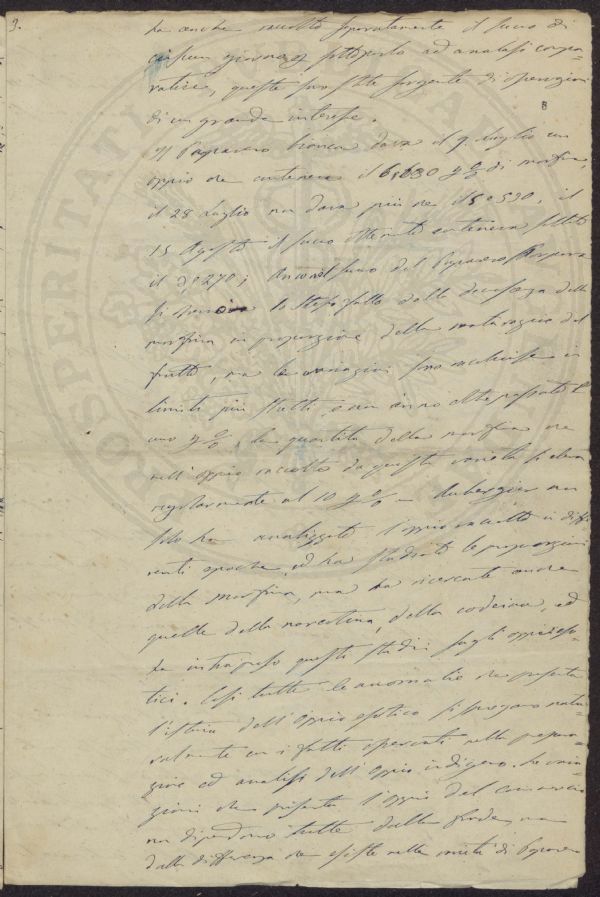 9.
8
ha anche raccolto separatamente il succo di
ciascun giorno, e sottoposto ad analisi compa-
rative, queste sono state sorgente di operazioni
di un grande interesse.
Il Papavero bianco dava il 9. Luglio un
oppio che conteneva il 6,630 p % di morfina,
il 28 Luglio non dava più che il 5,530, il
15 Agosto il succo ottenuto conteneva soltanto
il 3,270; succo del Papavero
si lo stesso fatto della decrescenza della
morfina in proporzione della maturazione del
frutto, ma le variazioni sono racchiuse in
limiti più stretti, e non vanno oltrepassato l'
uno p %, la quantità della morfina che
nell'oppio raccolto da questa varietà si eleva
regolarmente al 10 p % – Aubergier non
solo ha analizzato l'oppio raccolto in diffe-
renti epoche, ed ha studiato le proporzioni
della morfina, ma ha ricercate anche
quelle della narcotina, della codeina, ed
ha intrapreso questi studi sugli oppii eso-
tici. Così tutte le anomalie che presenta
l'istoria dell'oppio esotico si spiegano natu-
ralmente con i fatti osservati nella prepara-
zione ed analisi dell'oppio indigeno. Le varia-
zioni che presenta l'oppio del commercio
non dipendono tutte dalla frode, ma
dalla differenza che esiste nelle varietà di Papavero
PROSPERITATI